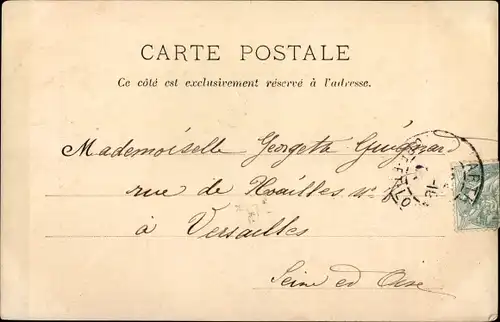 CARTE POSTALE
Ce côté est exclusivement réservé à l'adresse.
Mademoiselle Georgeta
rue de Noailles n°
à Versailles
Seine et Oise